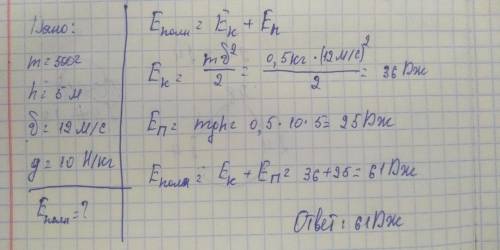 Дано:
m = 500г
h = 5 м
υ = 12 м/с
g = 10 Н/кг
Eполн = ?
Eполн = Eк + Eп
Eк = mυ²/2 = 0,5кг · (12м/с)²/2 = 36 Дж
Eп = mgh = 0,5 · 10 · 5 = 25 Дж
Eполн = Eк + Eп = 36 + 25 = 61 Дж
Ответ: 61 Дж